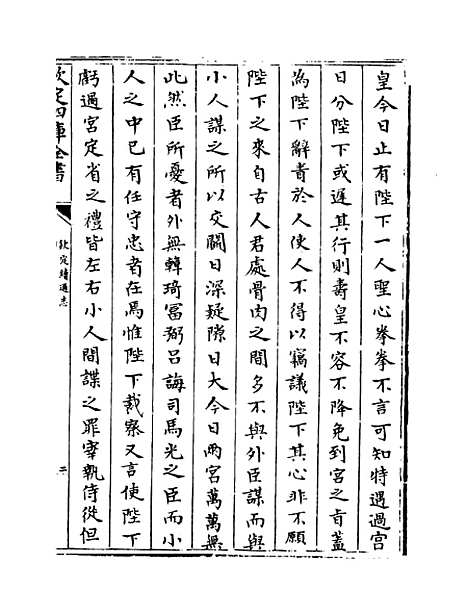 皇今日止有陛下一人聖心拳拳不言可知特遇過宫
日分陛下或遲其行則壽皇不容不降免到宫之㫖蓋
為陛下辭責於人使人不得以竊議陛下其心非不願
陛下之來自古人君處骨肉之間多不與外臣謀而與
小人謀之所以交關日深疑隙日大今日兩宫萬萬無
此然臣所憂者外無韓琦富弼吕誨司馬光之臣而小
人之中已有任守忠者在焉惟陛下裁察又言使陛下
虧過宫定省之禮皆左右小人間諜之罪宰執侍從但
欽定四庫全書
欽定續通志
二